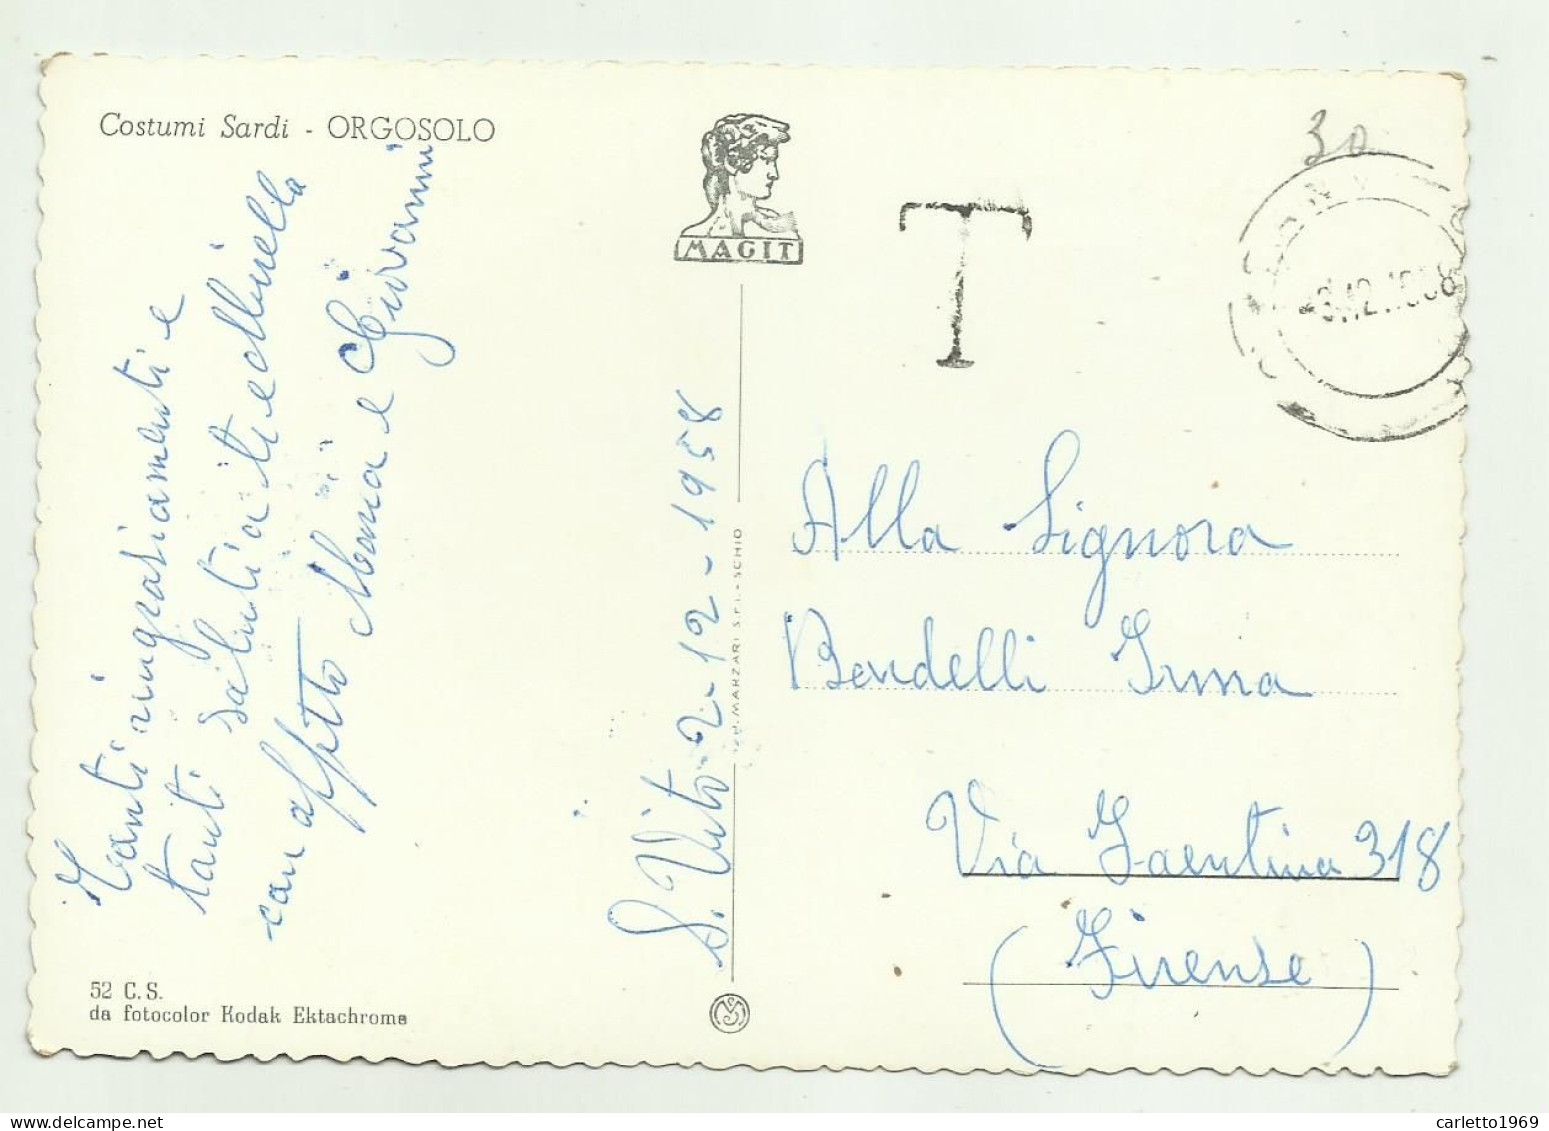 Costumi Sardi - ORGOSOLO
MAGIT
T
30
Tanti ringrasiamenti e
tanti saluti a ti e
con affetto Maria e Giovanni
S. Vito 2-12-1958
MARZARI S.P.I. - SCHIO
Alla Signora
Bardelli Irma
Via Faentina 318
(Firense)
52 C. S.
da fotocolor Kodak Ektachrome
carletto1969